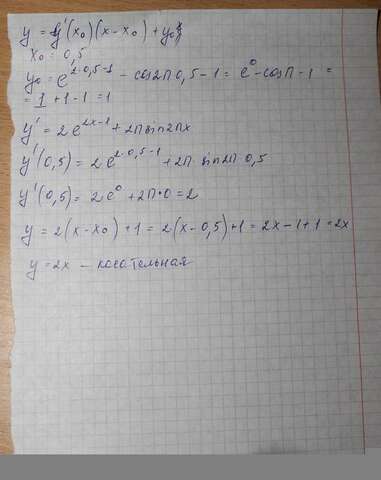 y = y'(x₀)(x-x₀) + y₀
x₀ = 0,5
y₀ = e^(2·0,5-1) - cos2π0,5-1 = e⁰-cosπ-1 =
= 1 + 1 - 1 = 1
y' = 2e^(2x-1) + 2π sin2πx
y'(0,5) = 2e^(2·0,5-1) + 2π·sin2π·0,5
y'(0,5) = 2e⁰ + 2π·0 = 2
y = 2(x-x₀) + 1 = 2(x-0,5)+1 = 2x-1+1 = 2x
y = 2x - касательная